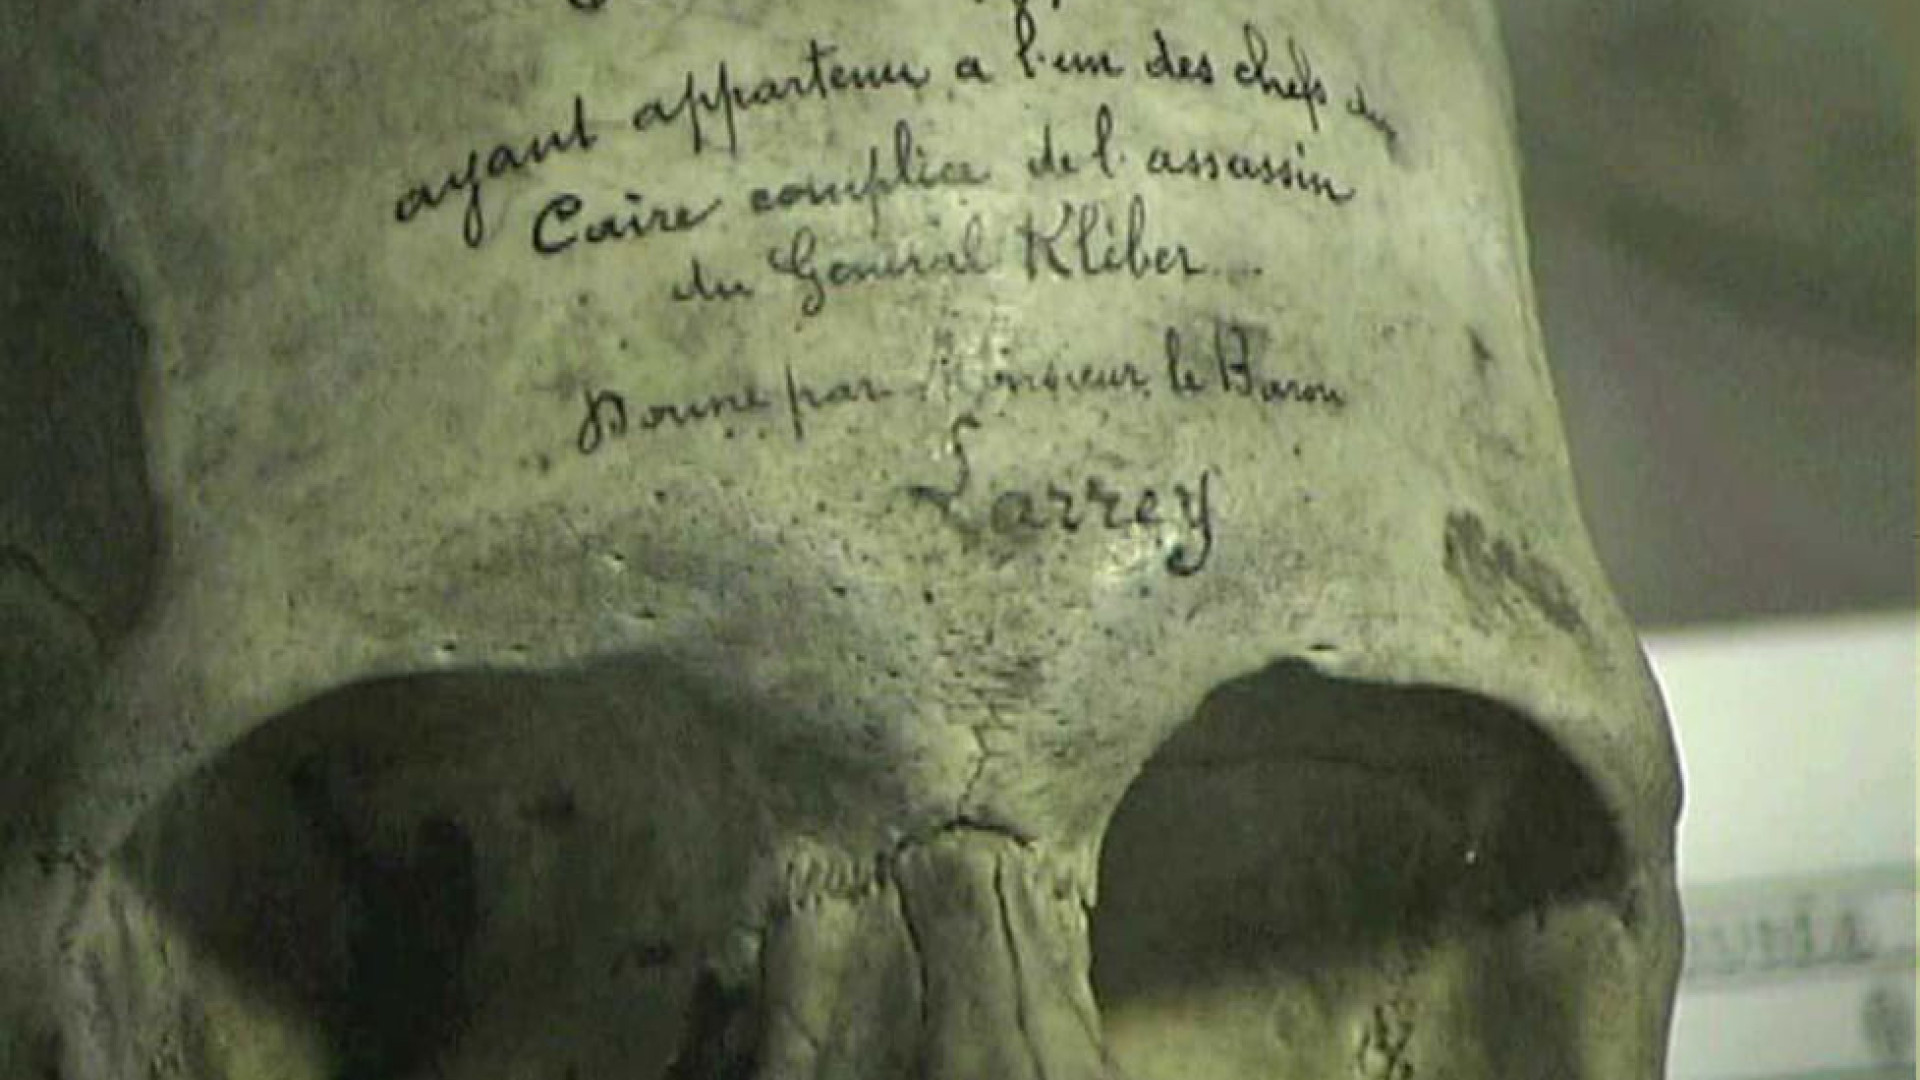 ayant appartenu a l'un des chefs du
Caire complice de l'assassin
du Général Kléber...
Donné par Monsieur le Baron
Larrey